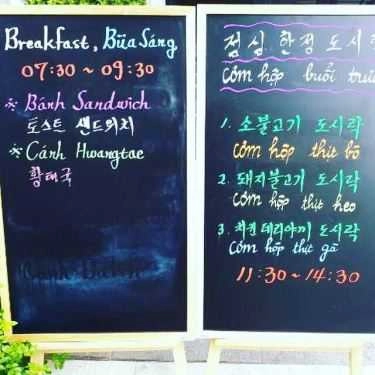 Breakfast, Bữa Sáng
07:30 ~ 09:30
* Bánh Sandwich
토스트 샌드위치
* Cánh Hwangtae
황태국
점심 한정 도시락
Cơm hộp buổi trưa
1. 소불고기 도시락
Cơm hộp thịt bò
2. 돼지불고기 도시락
Cơm hộp thịt heo
3. 치킨 데리야끼 도시락
Cơm hộp thịt gà
11:30 ~ 14:30